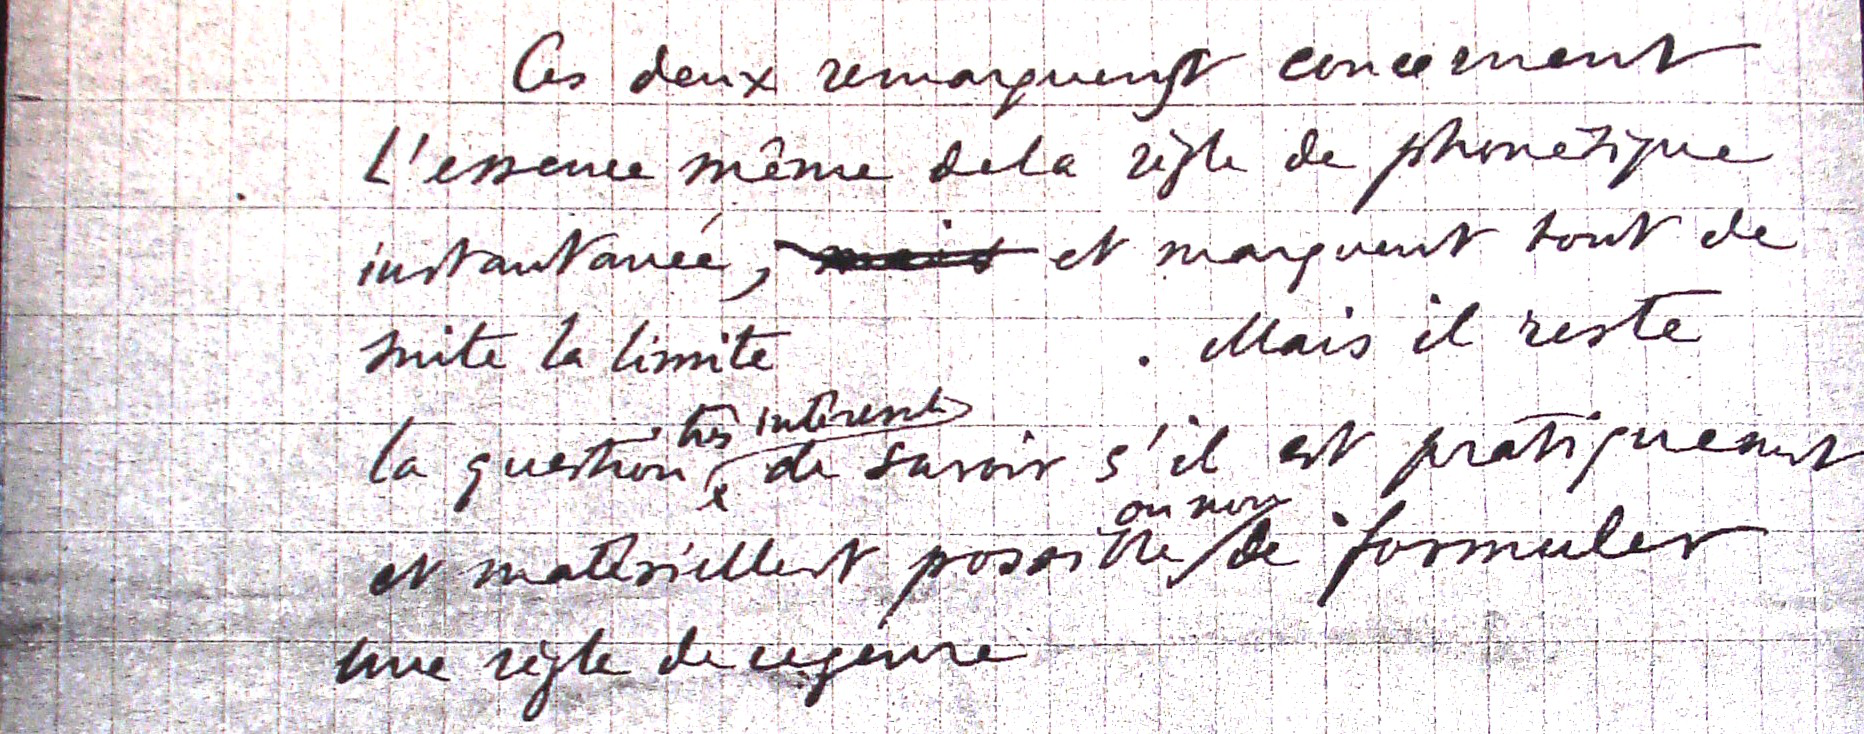 Ces deux remarquent concernent
L'essence même de la règle de phonétique
instantanée, mais et marquent tout de
suite la limite . Mais il reste
très intéressante
la question de savoir s'il est pratiquement
ou non
et matériellement possible de formuler
une règle de ce genre